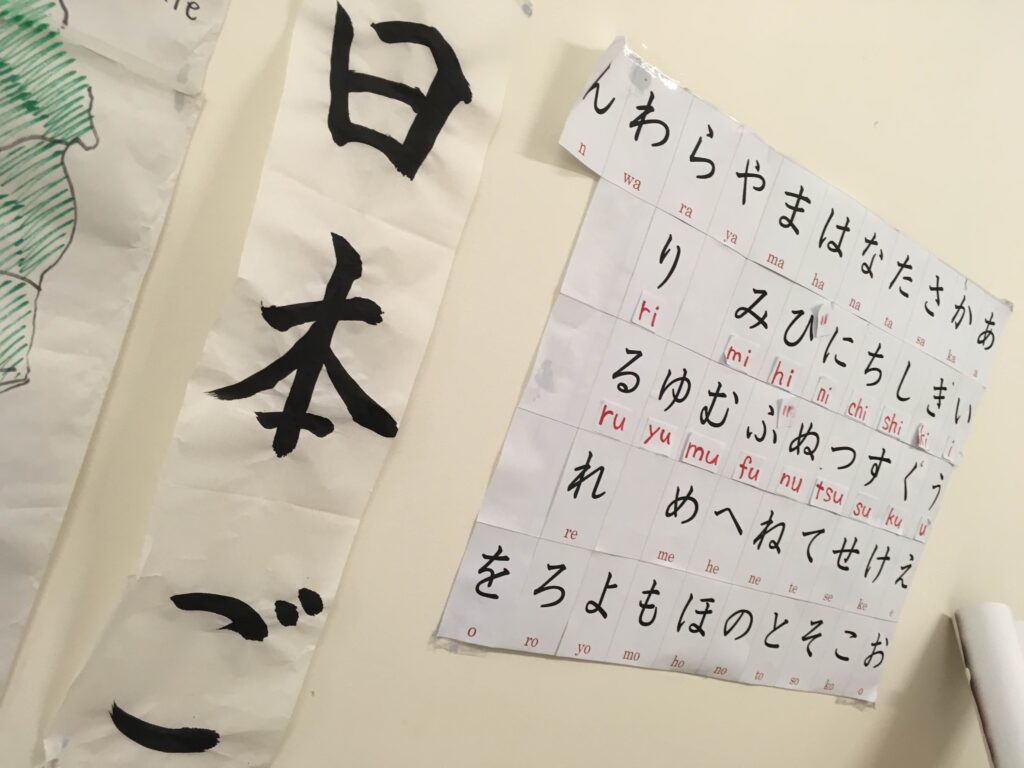 日本ご
ん わ ら や ま は な た さ か あ
n wa ra ya ma ha na ta sa ka a
り み ひ に ち し き い
ri mi hi ni chi shi ki i
る ゆ む ふ ぬ つ す く う
ru yu mu fu nu tsu su ku u
れ め へ ね て せ け え
re me he ne te se ke e
を ろ よ も ほ の と そ こ お
o ro yo mo ho no to so ko o